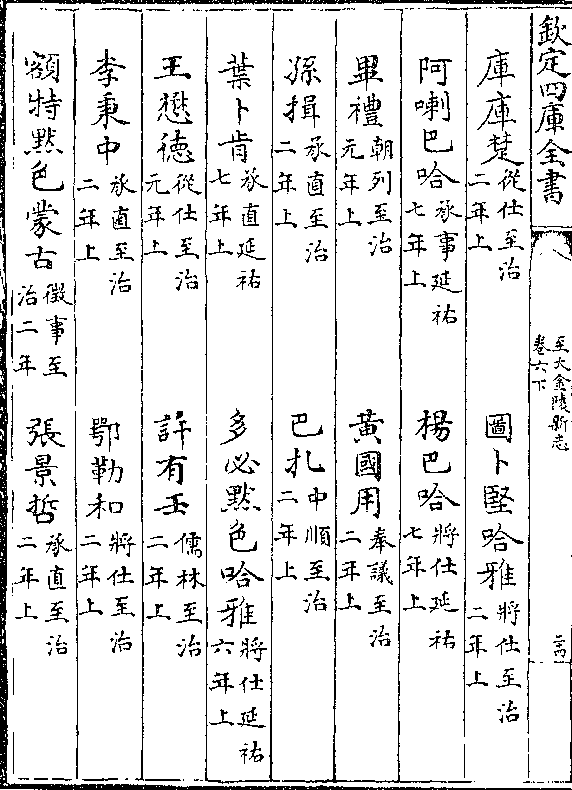 欽定四庫全書
至大金陵新志
卷六下
庫庫楚 從仕至治二年上 圖卜堅哈雅 將仕至治二年上
阿喇巴哈 承事延祐七年上 楊巴哈 將仕延祐七年上
畢禮 朝列至治元年上 黃國用 奉議至治二年上
孫揖 承直至治二年上 巴扎 中順至治二年上
葉卜肯 承直延祐七年上 多必黙色哈雅 將仕延祐六年上
王懋德 從仕至治元年上 許有壬 儒林至治二年上
李秉中 承直至治二年上 鄂勒和 將仕至治二年上
額特黙色蒙古 徵事至治二年 張景哲 承直至治二年上